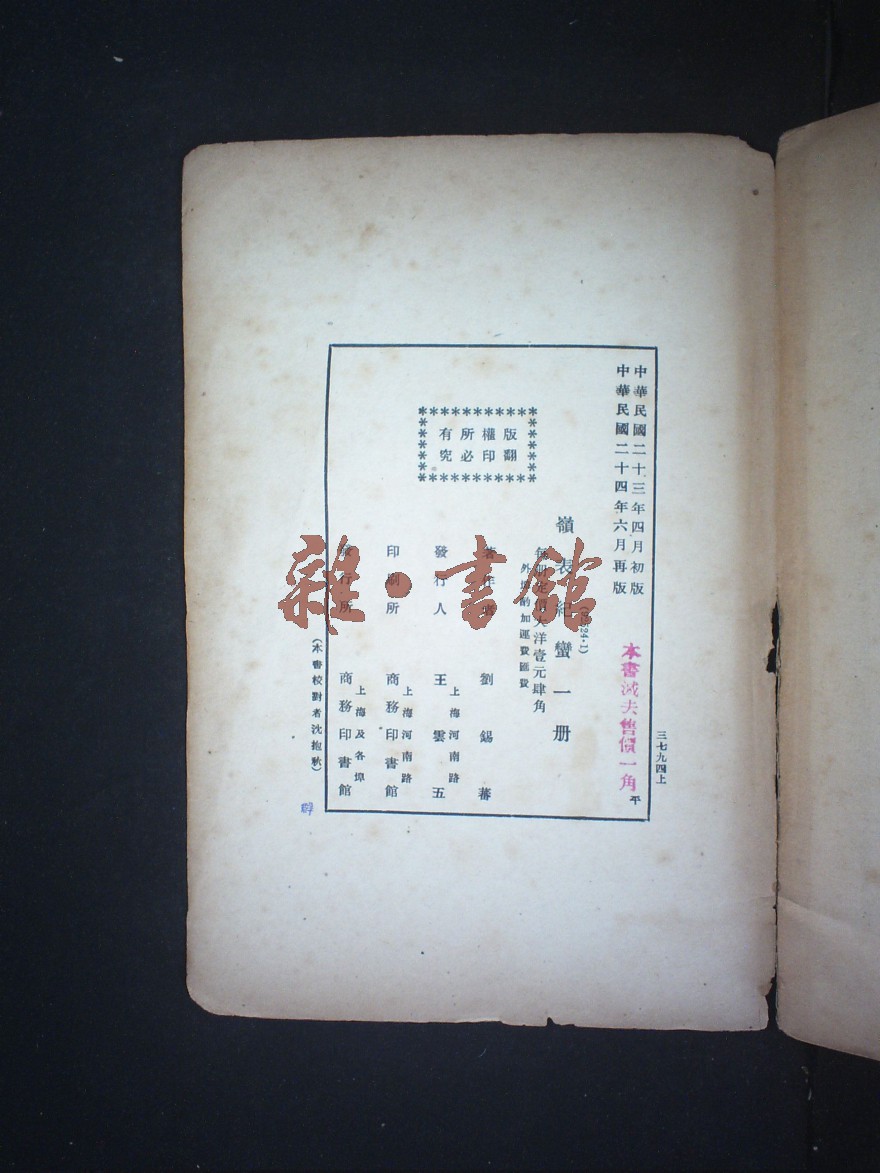 中華民國二十三年四月初版
中華民國二十四年六月再版
三七九四上
本書減去售價一角
平
(52524·1)
嶺表紀蠻一册
每册定價大洋壹元肆角
外埠酌加運費匯費
版權所有
翻印必究
著作者 劉錫蕃
發行人 王雲五
上海河南路
印刷所 商務印書館
上海河南路
發行所 商務印書館
上海及各埠
(本書校對者沈抱秋)
雜·書館